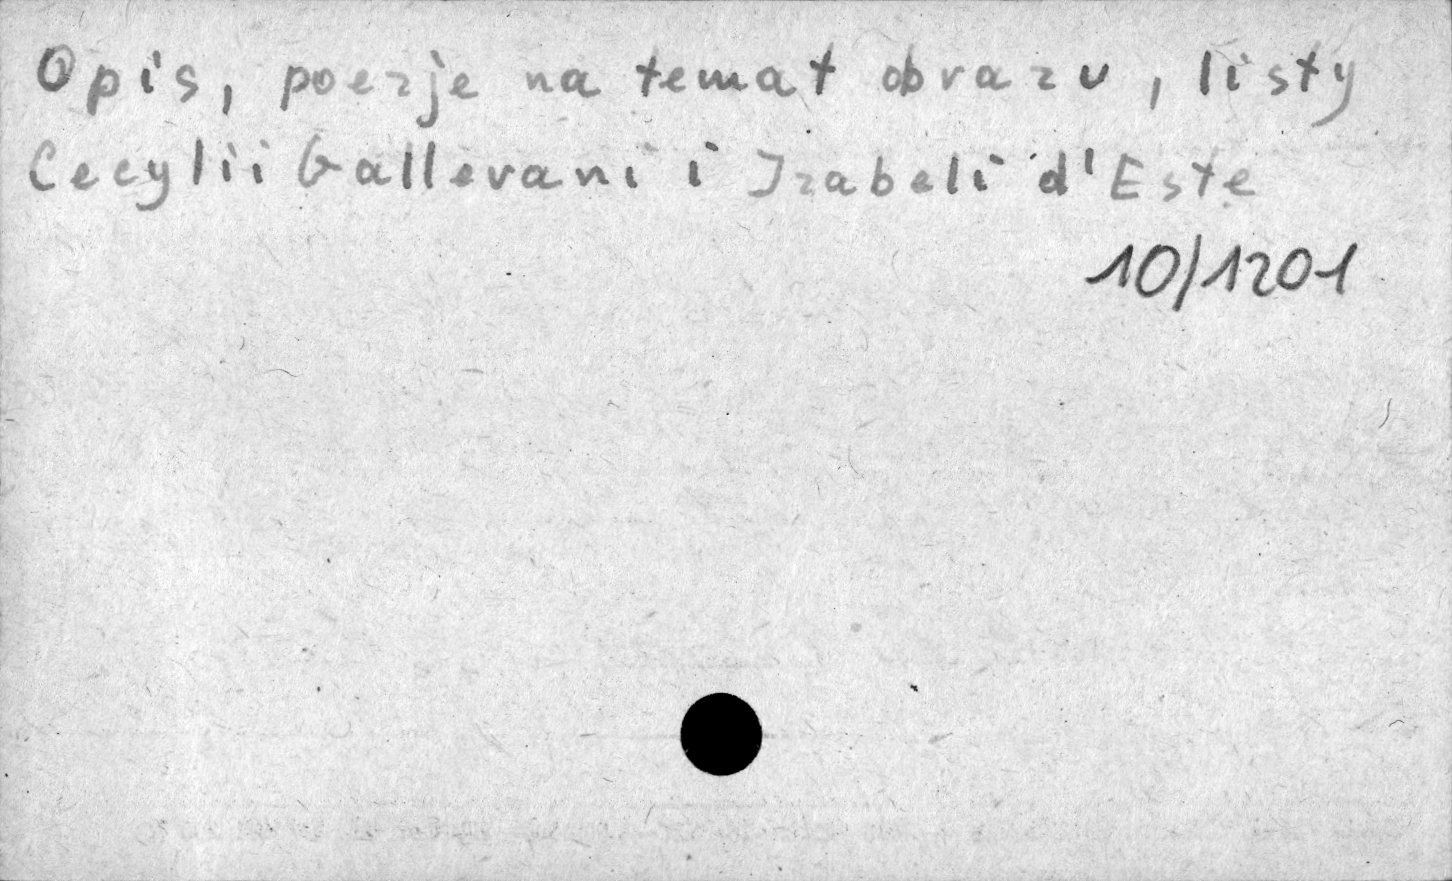 Opis, poezje na temat obrazu, listy
Cecylii Gallerani i Izabeli d'Este
10/1201